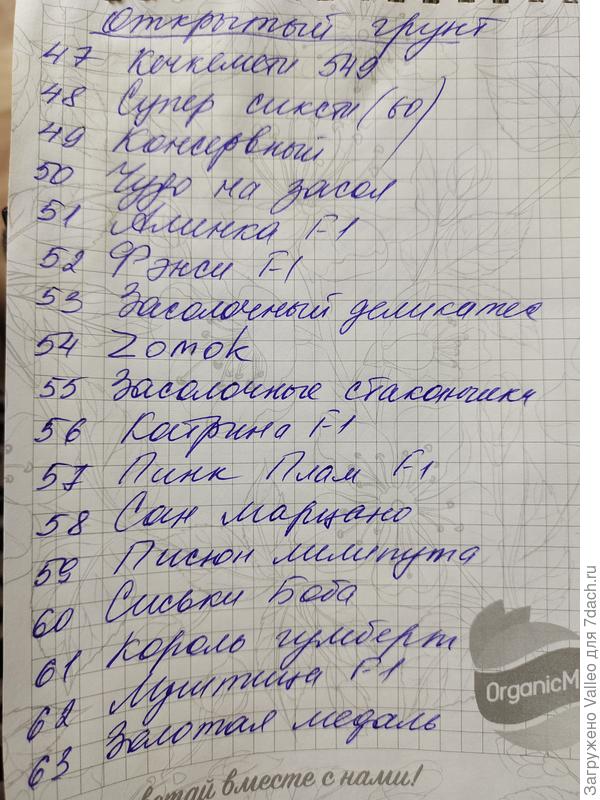 Открытый грунт
47 Кечкемети 549
48 Супер сиксти (60)
49 Консервный
50 Чудо на засол
51 Алинка F1
52 Фэнси F1
53 Засолочный деликатес
54 Zomok
55 Засолочные стаканчики
56 Катрина F1
57 Пинк Плам F1
58 Сан марцано
59 Писюн лилипута
60 Сиськи Боба
61 Король гумберт
62 Муштица F1
63 Золотая медаль
OrganicM
вместе с нами!
Загружено Valleo для 7dach.ru